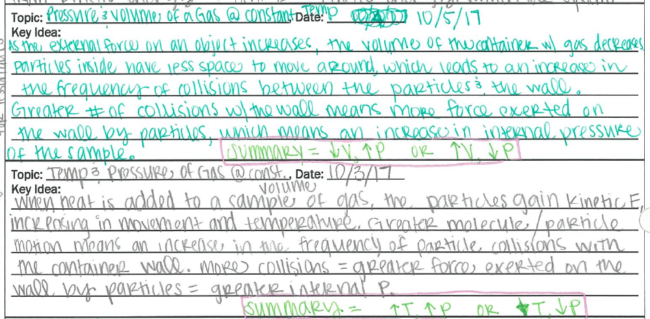 Topic: Pressure & volume of a Gas @ constant Temp Date: 10/5/17
Key Idea:
As the external force on an object increases, the volume of the container w/ gas decreases
Particles inside have less space to move around, which leads to an increase in
the frequency of collisions between the particles & the wall.
Greater # of collisions w/ the wall means more force exerted on
the wall by particles, which means an increase in internal pressure
of the sample.
Summary = ↓V, ↑P OR ↑V, ↓P
Topic: Temp & Pressure of Gas @ const. volume Date: 10/3/17
Key Idea:
When heat is added to a sample of gas, the particles gain kinetic E,
increasing in movement and temperature. Greater molecule/particle
motion means an increase in the frequency of particle collisions with
the container wall. More collisions = greater force exerted on the
wall by particles = greater internal P.
Summary = ↑T, ↑P OR ↓T, ↓P